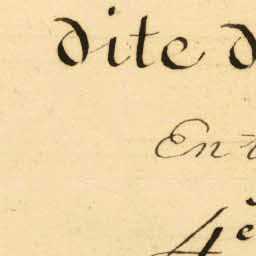 dite d
En t
4e